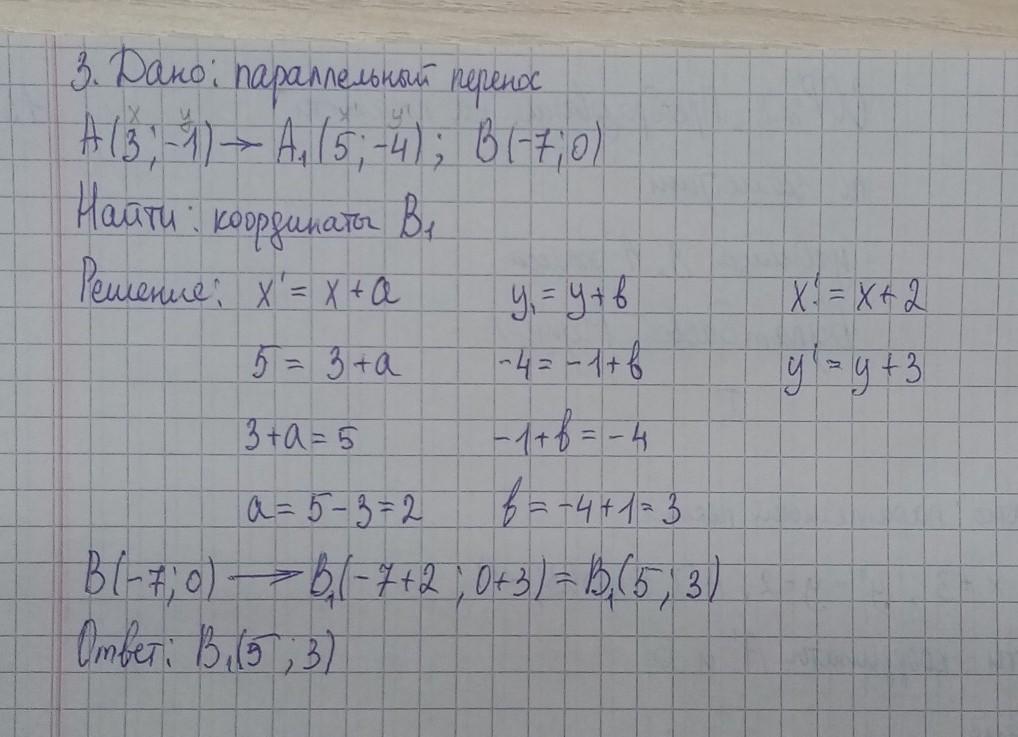 3. Дано: параллельный перенос
x y x' y'
A(3;-1) → A₁(5;-4); B(-7;0)
Найти: координаты B₁
Решение: x' = x + a y₁ = y + в x' = x + 2
5 = 3 + a -4 = -1 + в y' = y + 3
3 + a = 5 -1 + в = -4
a = 5 - 3 = 2 в = -4 + 1 = 3
B(-7;0) → B₁(-7+2; 0+3) = B₁(5; 3)
Ответ: B₁(5; 3)